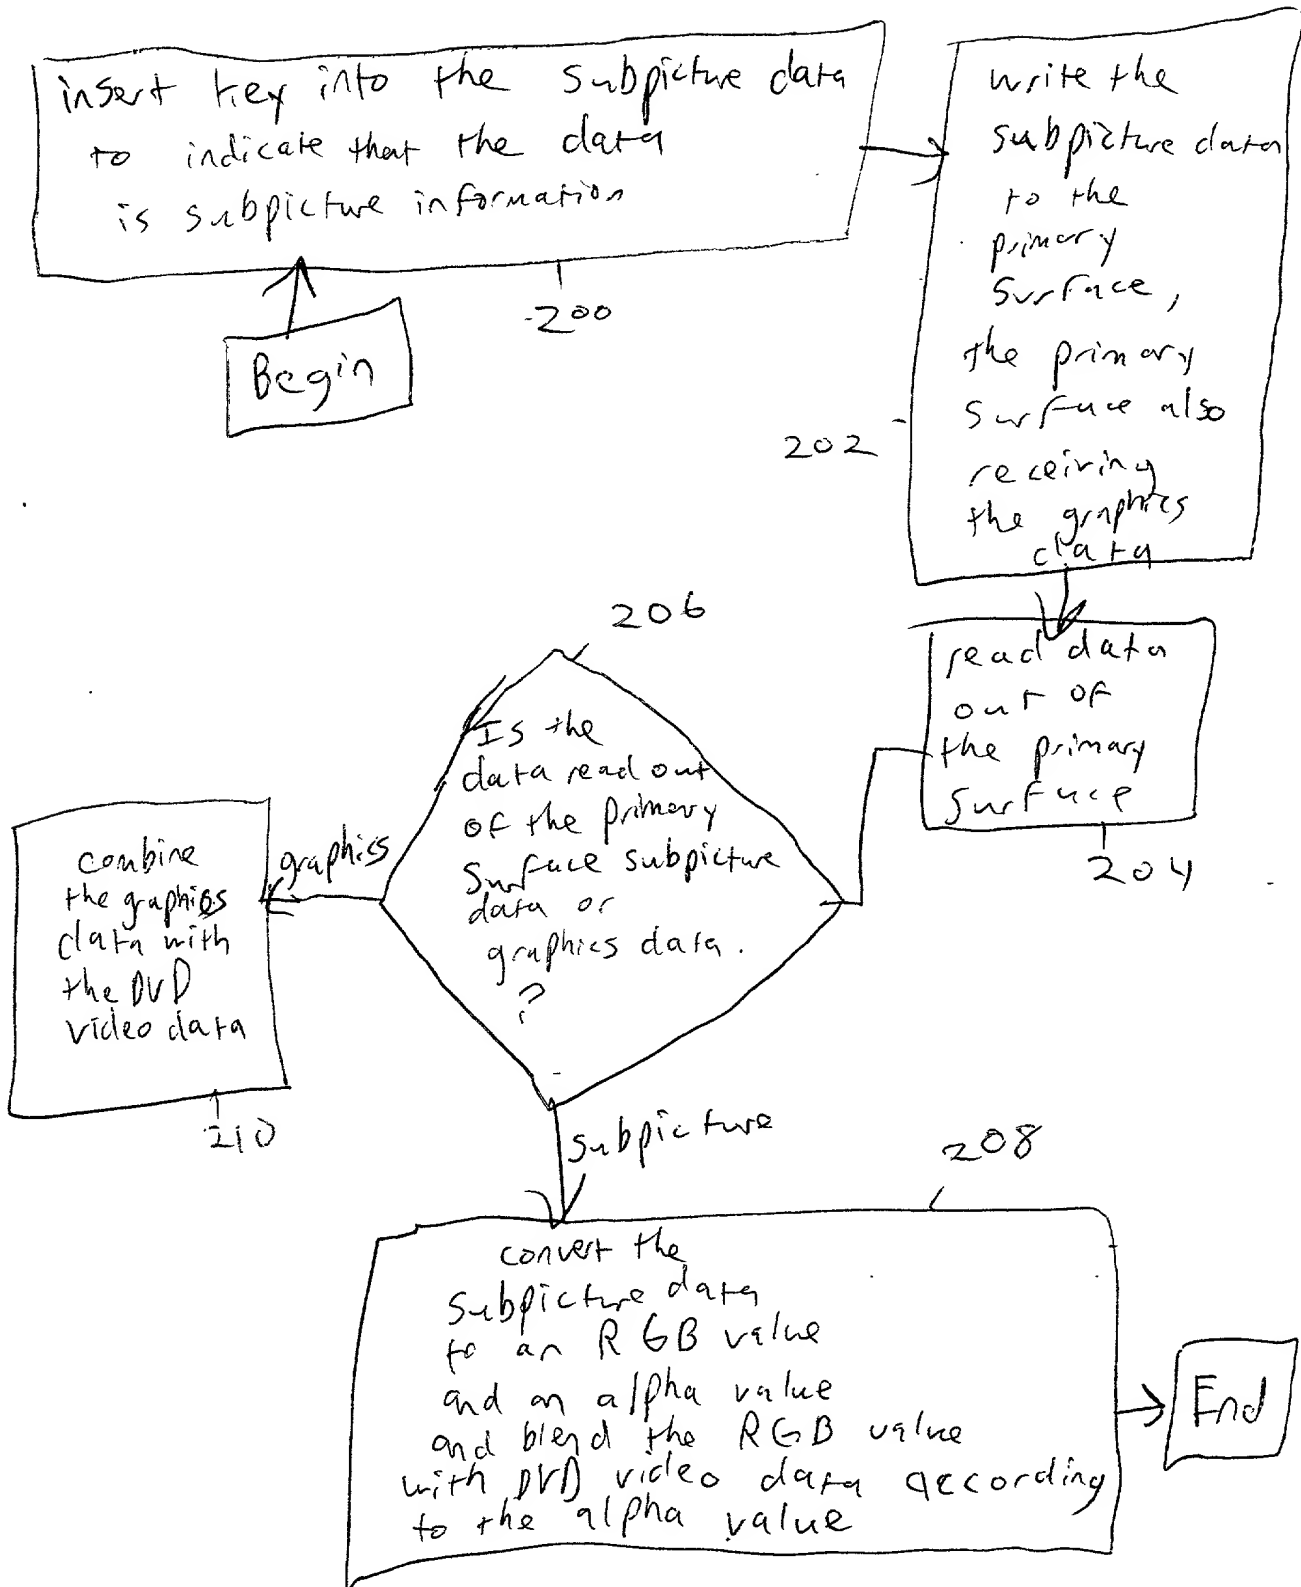 insert key into the subpicture data
to indicate that the data
is subpicture information
200
Begin
write the
subpicture data
to the
primary
surface,
the primary
surface also
receiving
the graphics
data
202
read data
out of
the primary
surface
204
206
Is the
data read out
of the primary
surface subpicture
data or
graphics data.
?
graphics
combine
the graphics
data with
the DVD
video data
210
subpicture
208
convert the
subpicture data
to an RGB value
and an alpha value
and blend the RGB value
with DVD video data according
to the alpha value
End